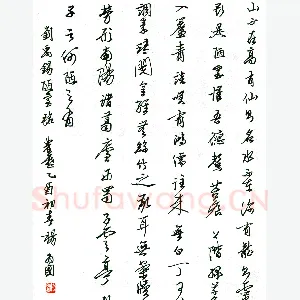 山不在高有仙則名水不在深有龍則靈
斯是陋室惟吾德馨苔痕上階綠草色
入簾青談笑有鴻儒往來無白丁可以
調素琴閱金經無絲竹之亂耳無案牘之
勞形南陽諸葛廬西蜀子雲亭孔
子云何陋之有
劉禹錫陋室銘 乙酉初春楊
Shufawang.cn